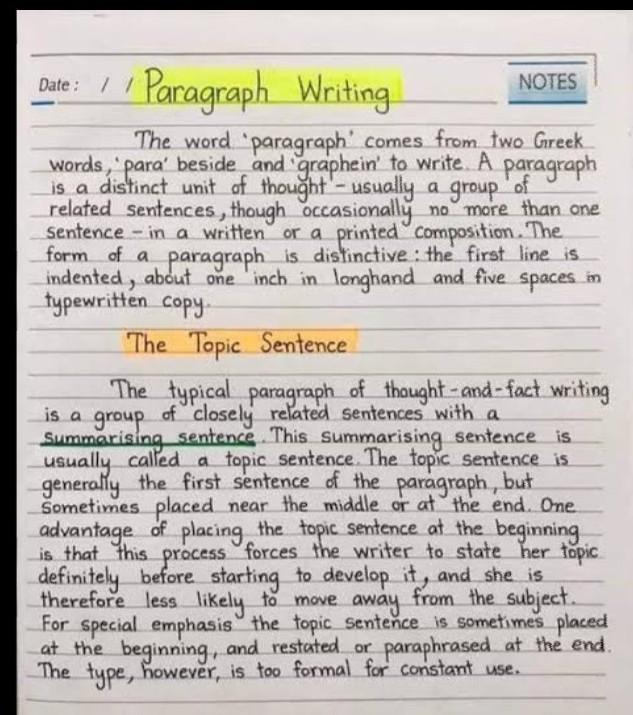 Date : / / Paragraph Writing NOTES
The word 'paragraph' comes from two Greek
words, 'para' beside and 'graphein' to write. A paragraph
is a distinct unit of thought - usually a group of
related sentences, though occasionally no more than one
sentence - in a written or a printed composition. The
form of a paragraph is distinctive : the first line is
indented, about one inch in longhand and five spaces in
typewritten copy.
The Topic Sentence
The typical paragraph of thought-and-fact writing
is a group of closely related sentences with a
summarising sentence. This summarising sentence is
usually called a topic sentence. The topic sentence is
generally the first sentence of the paragraph, but
sometimes placed near the middle or at the end. One
advantage of placing the topic sentence at the beginning
is that this process forces the writer to state her topic
definitely before starting to develop it, and she is
therefore less likely to move away from the subject.
For special emphasis the topic sentence is sometimes placed
at the beginning, and restated or paraphrased at the end.
The type, however, is too formal for constant use.